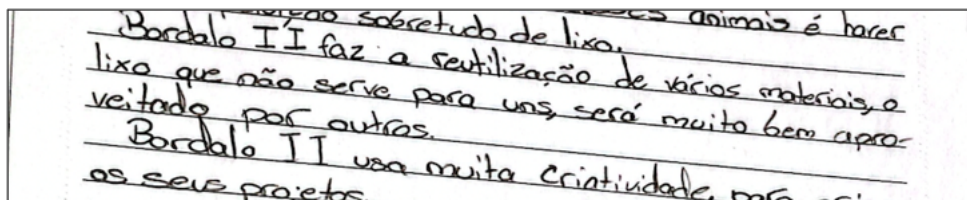 sobretudo de lixo. animais é haver
Bordalo II faz a reutilização de vários materiais, o
lixo que não serve para uns, será muito bem apro-
veitado por outros.
Bordalo II usa muita criatividade, para
os seus projetos